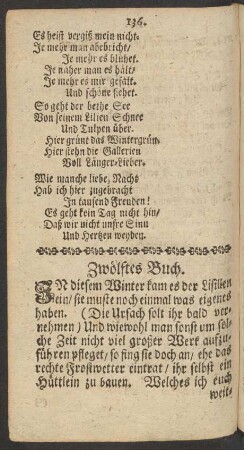 136.
Es heist vergiß mein nicht.
Je mehr man abebricht,
Je mehr es blühet.
Je näher man es hält,
Je mehr es mir gefält.
Und schöne siehet.
So geht der bethe See
Von seinem Lilien Schnee
Und Tulpen über.
Hier grünt das Wintergrün.
Hier stehn die Gallerien
Voll Länger-Lieber.
Wie manche liebe, Nachs
Hab ich hier zugebracht
In tausend Freuden!
Es geht kein Tag nicht hin,
Daß wir nicht unsre Sinn
Und Hertzen weyden.
Zwölftes Buch.
IN diesem Winter kam es der Lisilien
ein, sie muste noch einmal was eigenes
haben. (Die Ursach solt ihr bald ver-
nehmen) Und wiewohl man sonst um sol-
che Zeit nicht viel großer Werk aufzu-
führen pfleget, so fing sie doch an, ehe das
rechte Frostwetter eintrat, ihr selbst ein
Hüttlein zu bauen. Welches ich euch
weit-